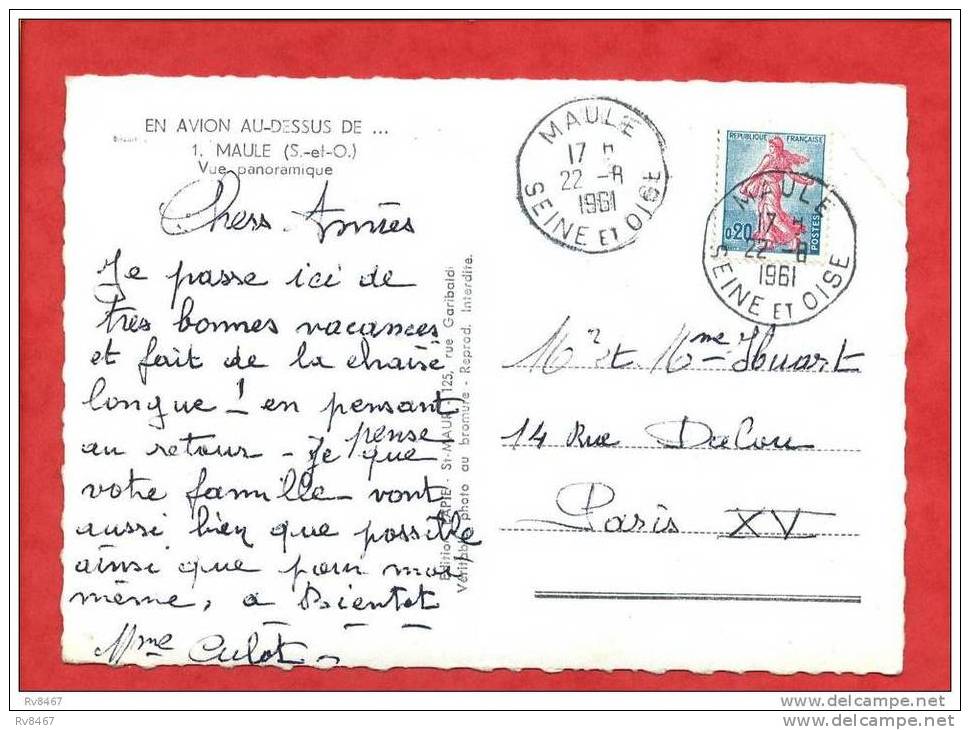 EN AVION AU-DESSUS DE ...
1. MAULE (S.-et-O.)
Vue panoramique
Chers Amies
Je passe ici de
très bonnes vacances
et fait de la chaise
longue ! en pensant
au retour - Je pense que
votre famille - vont
aussi bien que possible
ainsi que pour moi
même, a Bientot
Mme Culot
Editions LAPIE - St-MAUR - 125, rue Garibaldi
Véritable photo au bromure - Reprod. Interdite.
MAULE
17 H
22 -8
1961
SEINE ET OISE
REPUBLIQUE FRANÇAISE
0,20
POSTES
MAULE
17 H
22 -8
1961
SEINE ET OISE
Mr et Mme Huart
14 Rue Dalou
Paris XV
Rv8467
Rv8467
www.delcampe.net
www.delcampe.net